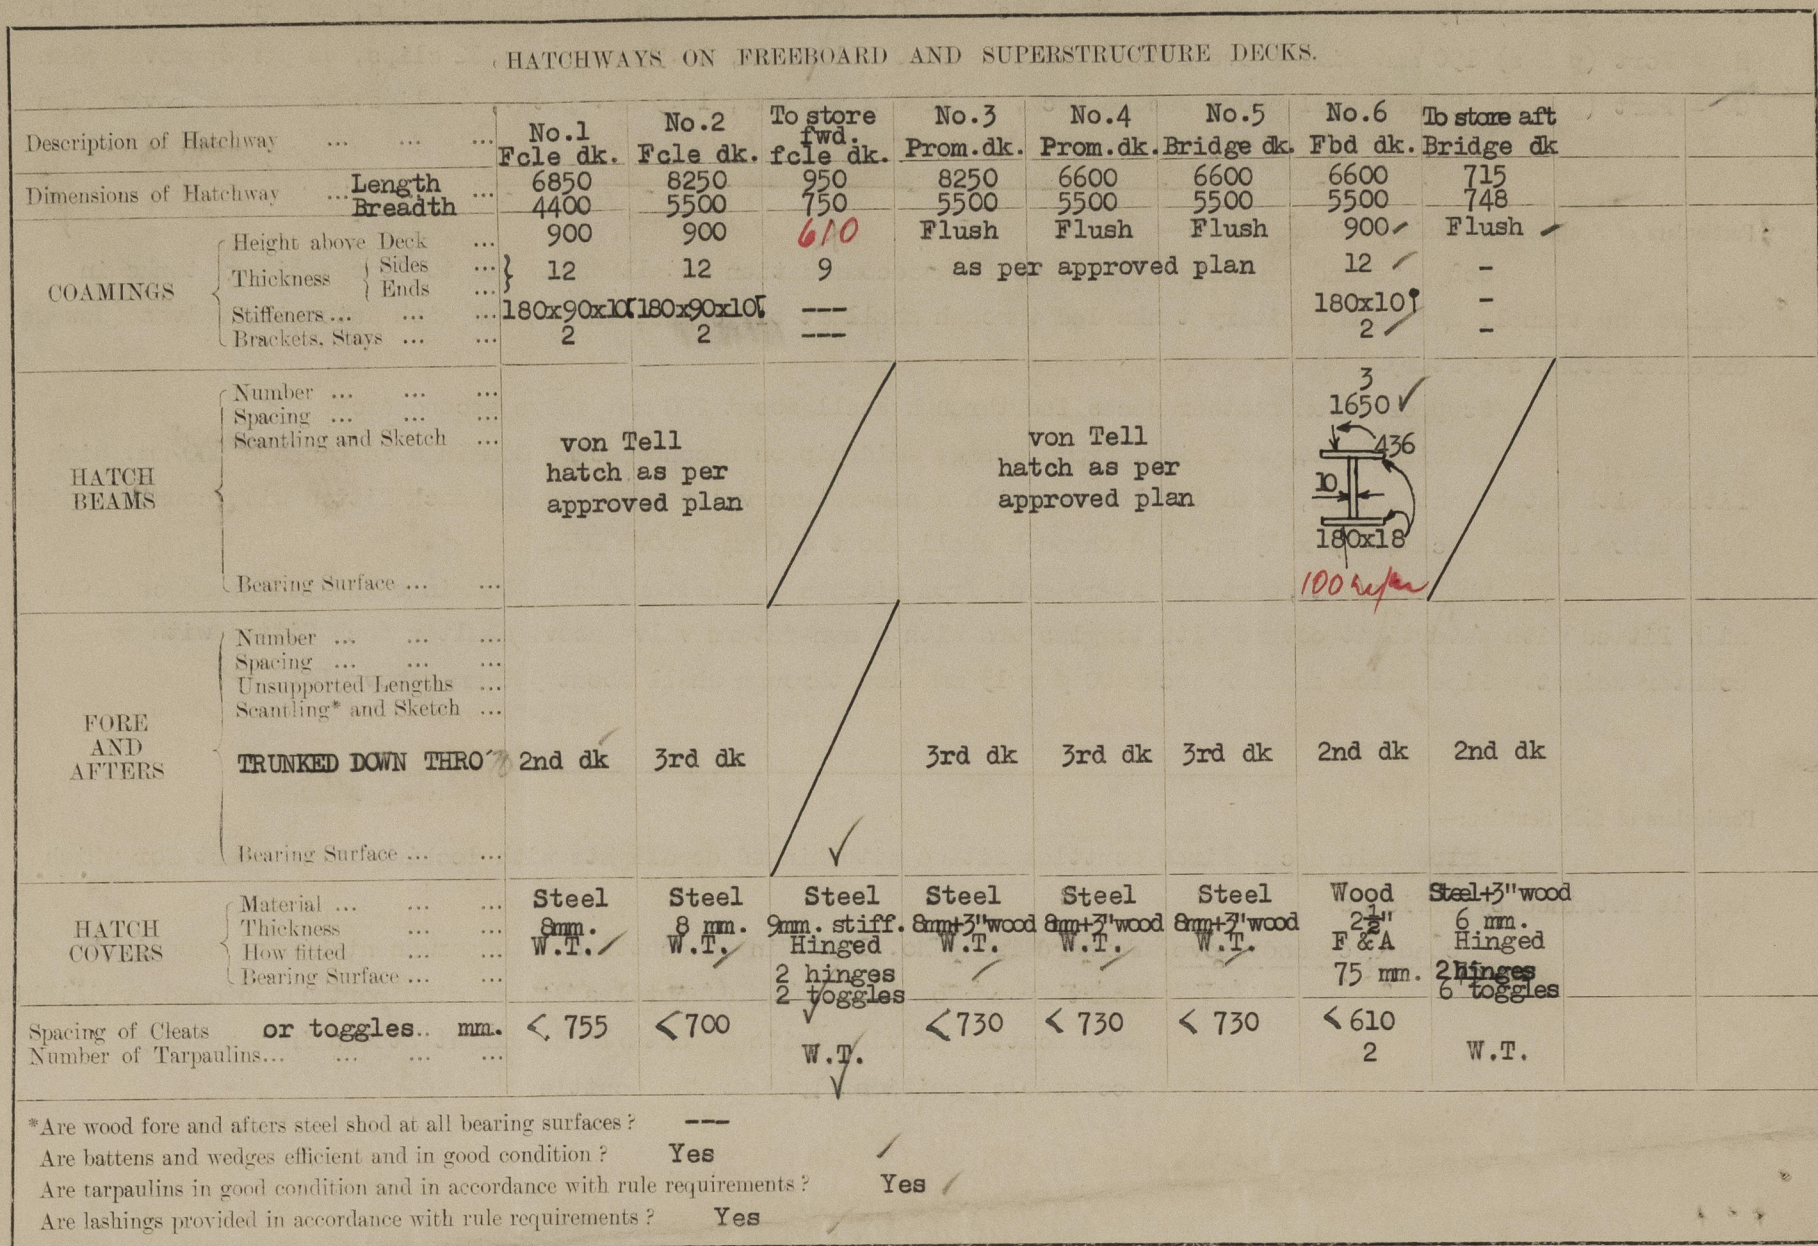 HATCHWAYS ON FREEBOARD AND SUPERSTRUCTURE DECKS.
Description of Hatchway ... ... ... No.1 Fcle dk. No.2 Fcle dk. To store fwd. fcle dk. No.3 Prom.dk. No.4 Prom.dk. No.5 Bridge dk. No.6 Fbd dk. To store aft Bridge dk
Dimensions of Hatchway ... Length ... 6850 8250 950 8250 6600 6600 6600 715
Breadth 4400 5500 750 5500 5500 5500 5500 748
COAMINGS
Height above Deck ... 900 900 610 Flush Flush Flush 900 Flush
Thickness { Sides ... } 12 12 9 as per approved plan 12 -
Ends ...
Stiffeners ... ... ... 180x90x10 180x90x10 --- 180x10 -
Brackets, Stays ... ... 2 2 --- 2 -
HATCH BEAMS
Number ... ... ... 3
Spacing ... ... ... 1650
Scantling and Sketch ... von Tell hatch as per approved plan von Tell hatch as per approved plan 436
10
180x18
Bearing Surface ... ... 100
FORE AND AFTERS
Number ... ... ...
Spacing ... ... ...
Unsupported Lengths ...
Scantling* and Sketch ...
TRUNKED DOWN THRO' 2nd dk 3rd dk 3rd dk 3rd dk 3rd dk 2nd dk 2nd dk
Bearing Surface ... ...
HATCH COVERS
Material ... ... ... Steel Steel Steel Steel Steel Steel Wood Steel+3"wood
Thickness ... ... 8mm. 8 mm. 9mm. stiff. 8mm+3"wood 8mm+3"wood 8mm+3"wood 2½" 6 mm.
How fitted ... ... W.T. W.T. Hinged W.T. W.T. W.T. F & A Hinged
Bearing Surface ... ... 2 hinges 75 mm. 2 hinges
2 toggles 6 toggles
Spacing of Cleats or toggles.. mm. < 755 <700 <730 < 730 < 730 <610
Number of Tarpaulins... ... ... ... W.T. 2 W.T.
*Are wood fore and afters steel shod at all bearing surfaces? ---
Are battens and wedges efficient and in good condition? Yes
Are tarpaulins in good condition and in accordance with rule requirements? Yes
Are lashings provided in accordance with rule requirements? Yes